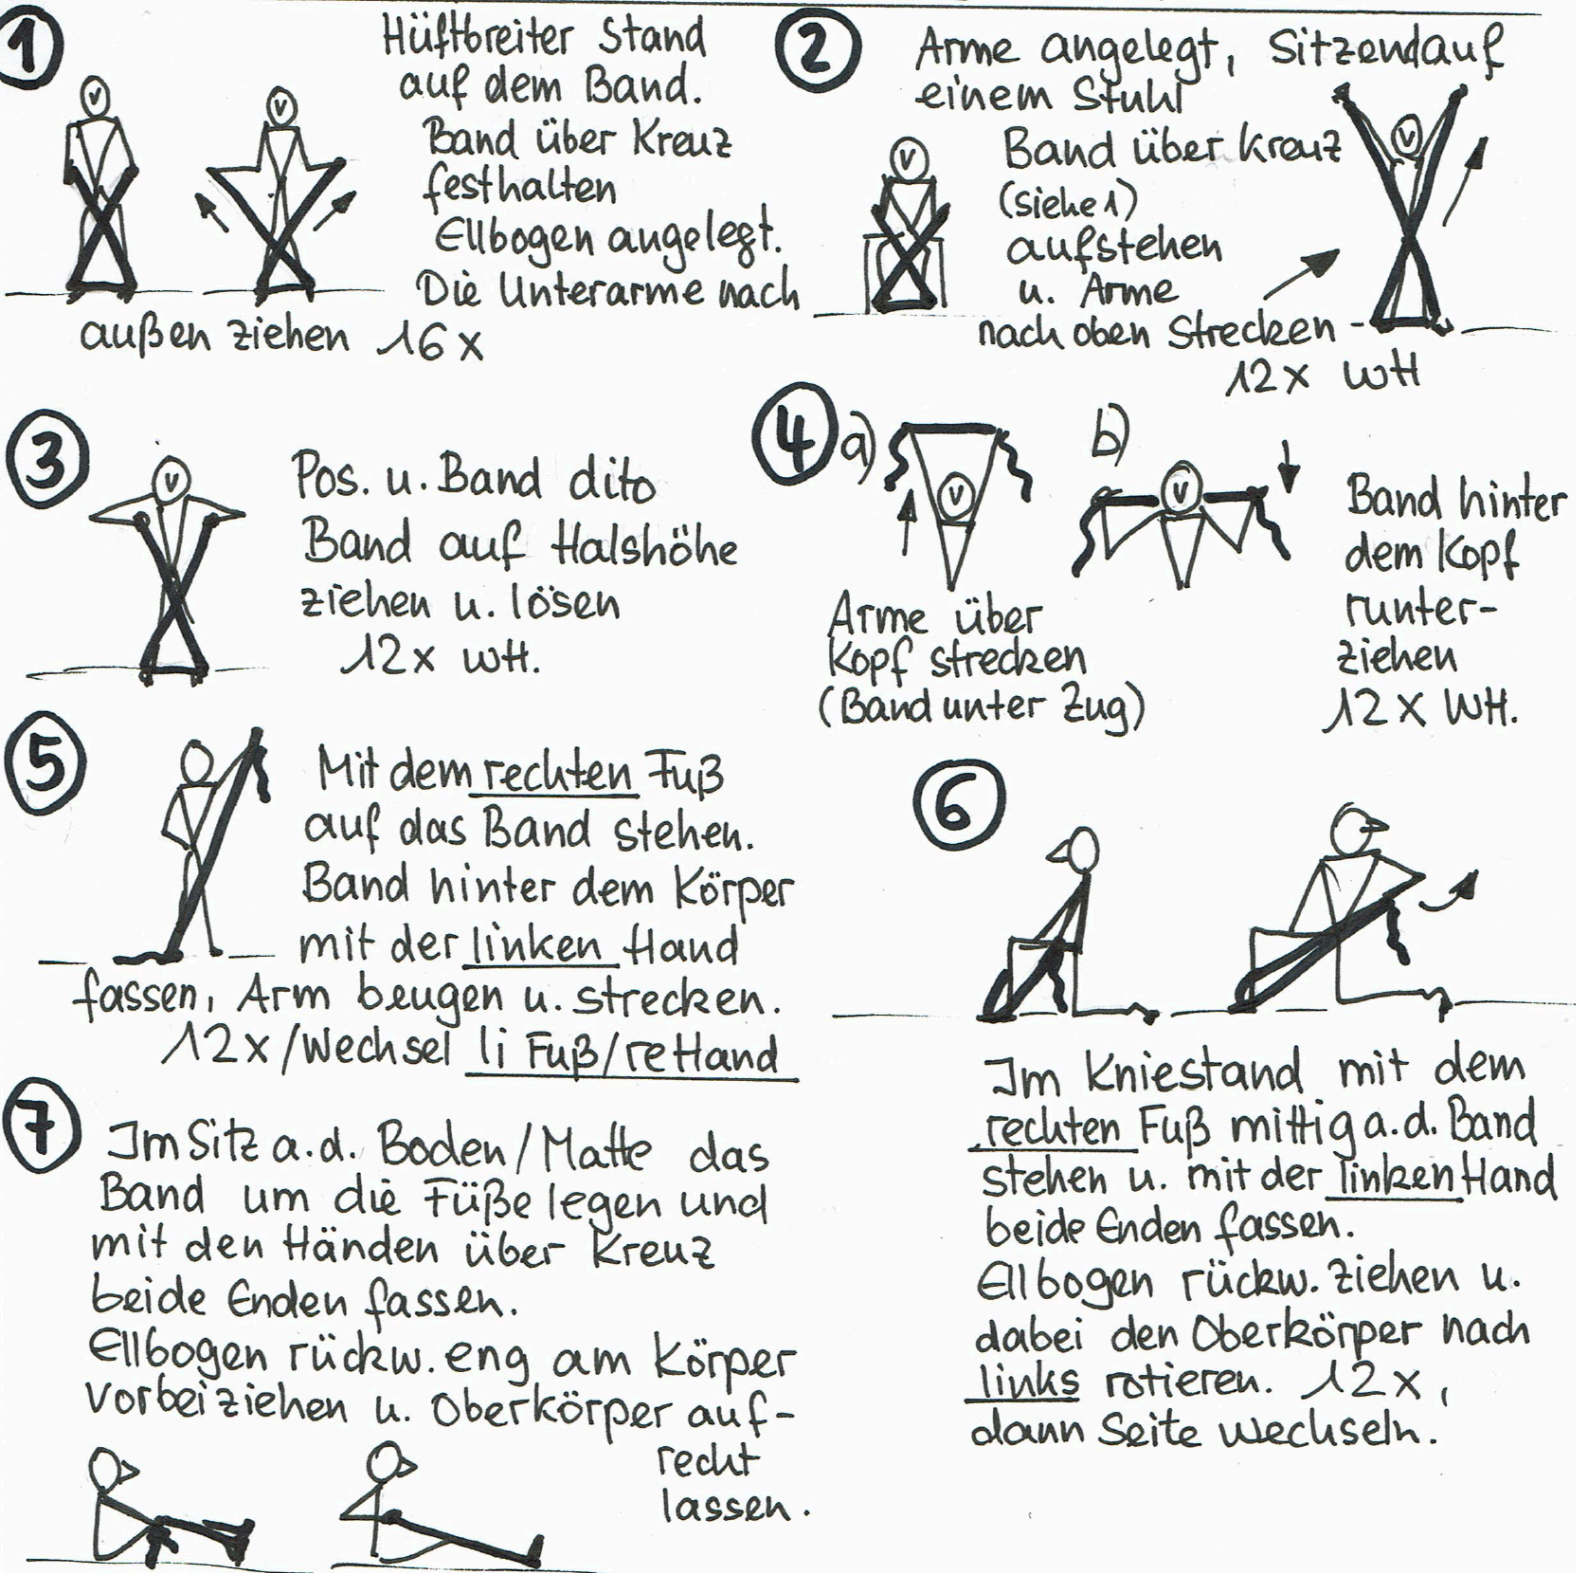 1
Hüftbreiter Stand
auf dem Band.
Band über Kreuz
festhalten
Ellbogen angelegt.
Die Unterarme nach
außen ziehen 16x
2
Arme angelegt, Sitzend auf
einem Stuhl
Band über Kreuz
(siehe 1)
aufstehen
u. Arme
nach oben strecken -
12x WH
3
Pos. u. Band dito
Band auf Halshöhe
ziehen u. lösen
12x WH.
4 a) b)
Arme über
Kopf strecken
(Band unter Zug)
Band hinter
dem Kopf
runter-
ziehen
12x WH.
5
Mit dem rechten Fuß
auf das Band stehen.
Band hinter dem Körper
mit der linken Hand
fassen, Arm beugen u. strecken.
12x/Wechsel li Fuß/re Hand
6
Im Kniestand mit dem
rechten Fuß mittig a.d. Band
stehen u. mit der linken Hand
beide Enden fassen.
Ellbogen rückw. ziehen u.
dabei den Oberkörper nach
links rotieren. 12x,
dann Seite wechseln.
7
Im Sitz a.d. Boden/Matte das
Band um die Füße legen und
mit den Händen über Kreuz
beide Enden fassen.
Ellbogen rückw. eng am Körper
vorbeiziehen u. Oberkörper auf-
recht
lassen.